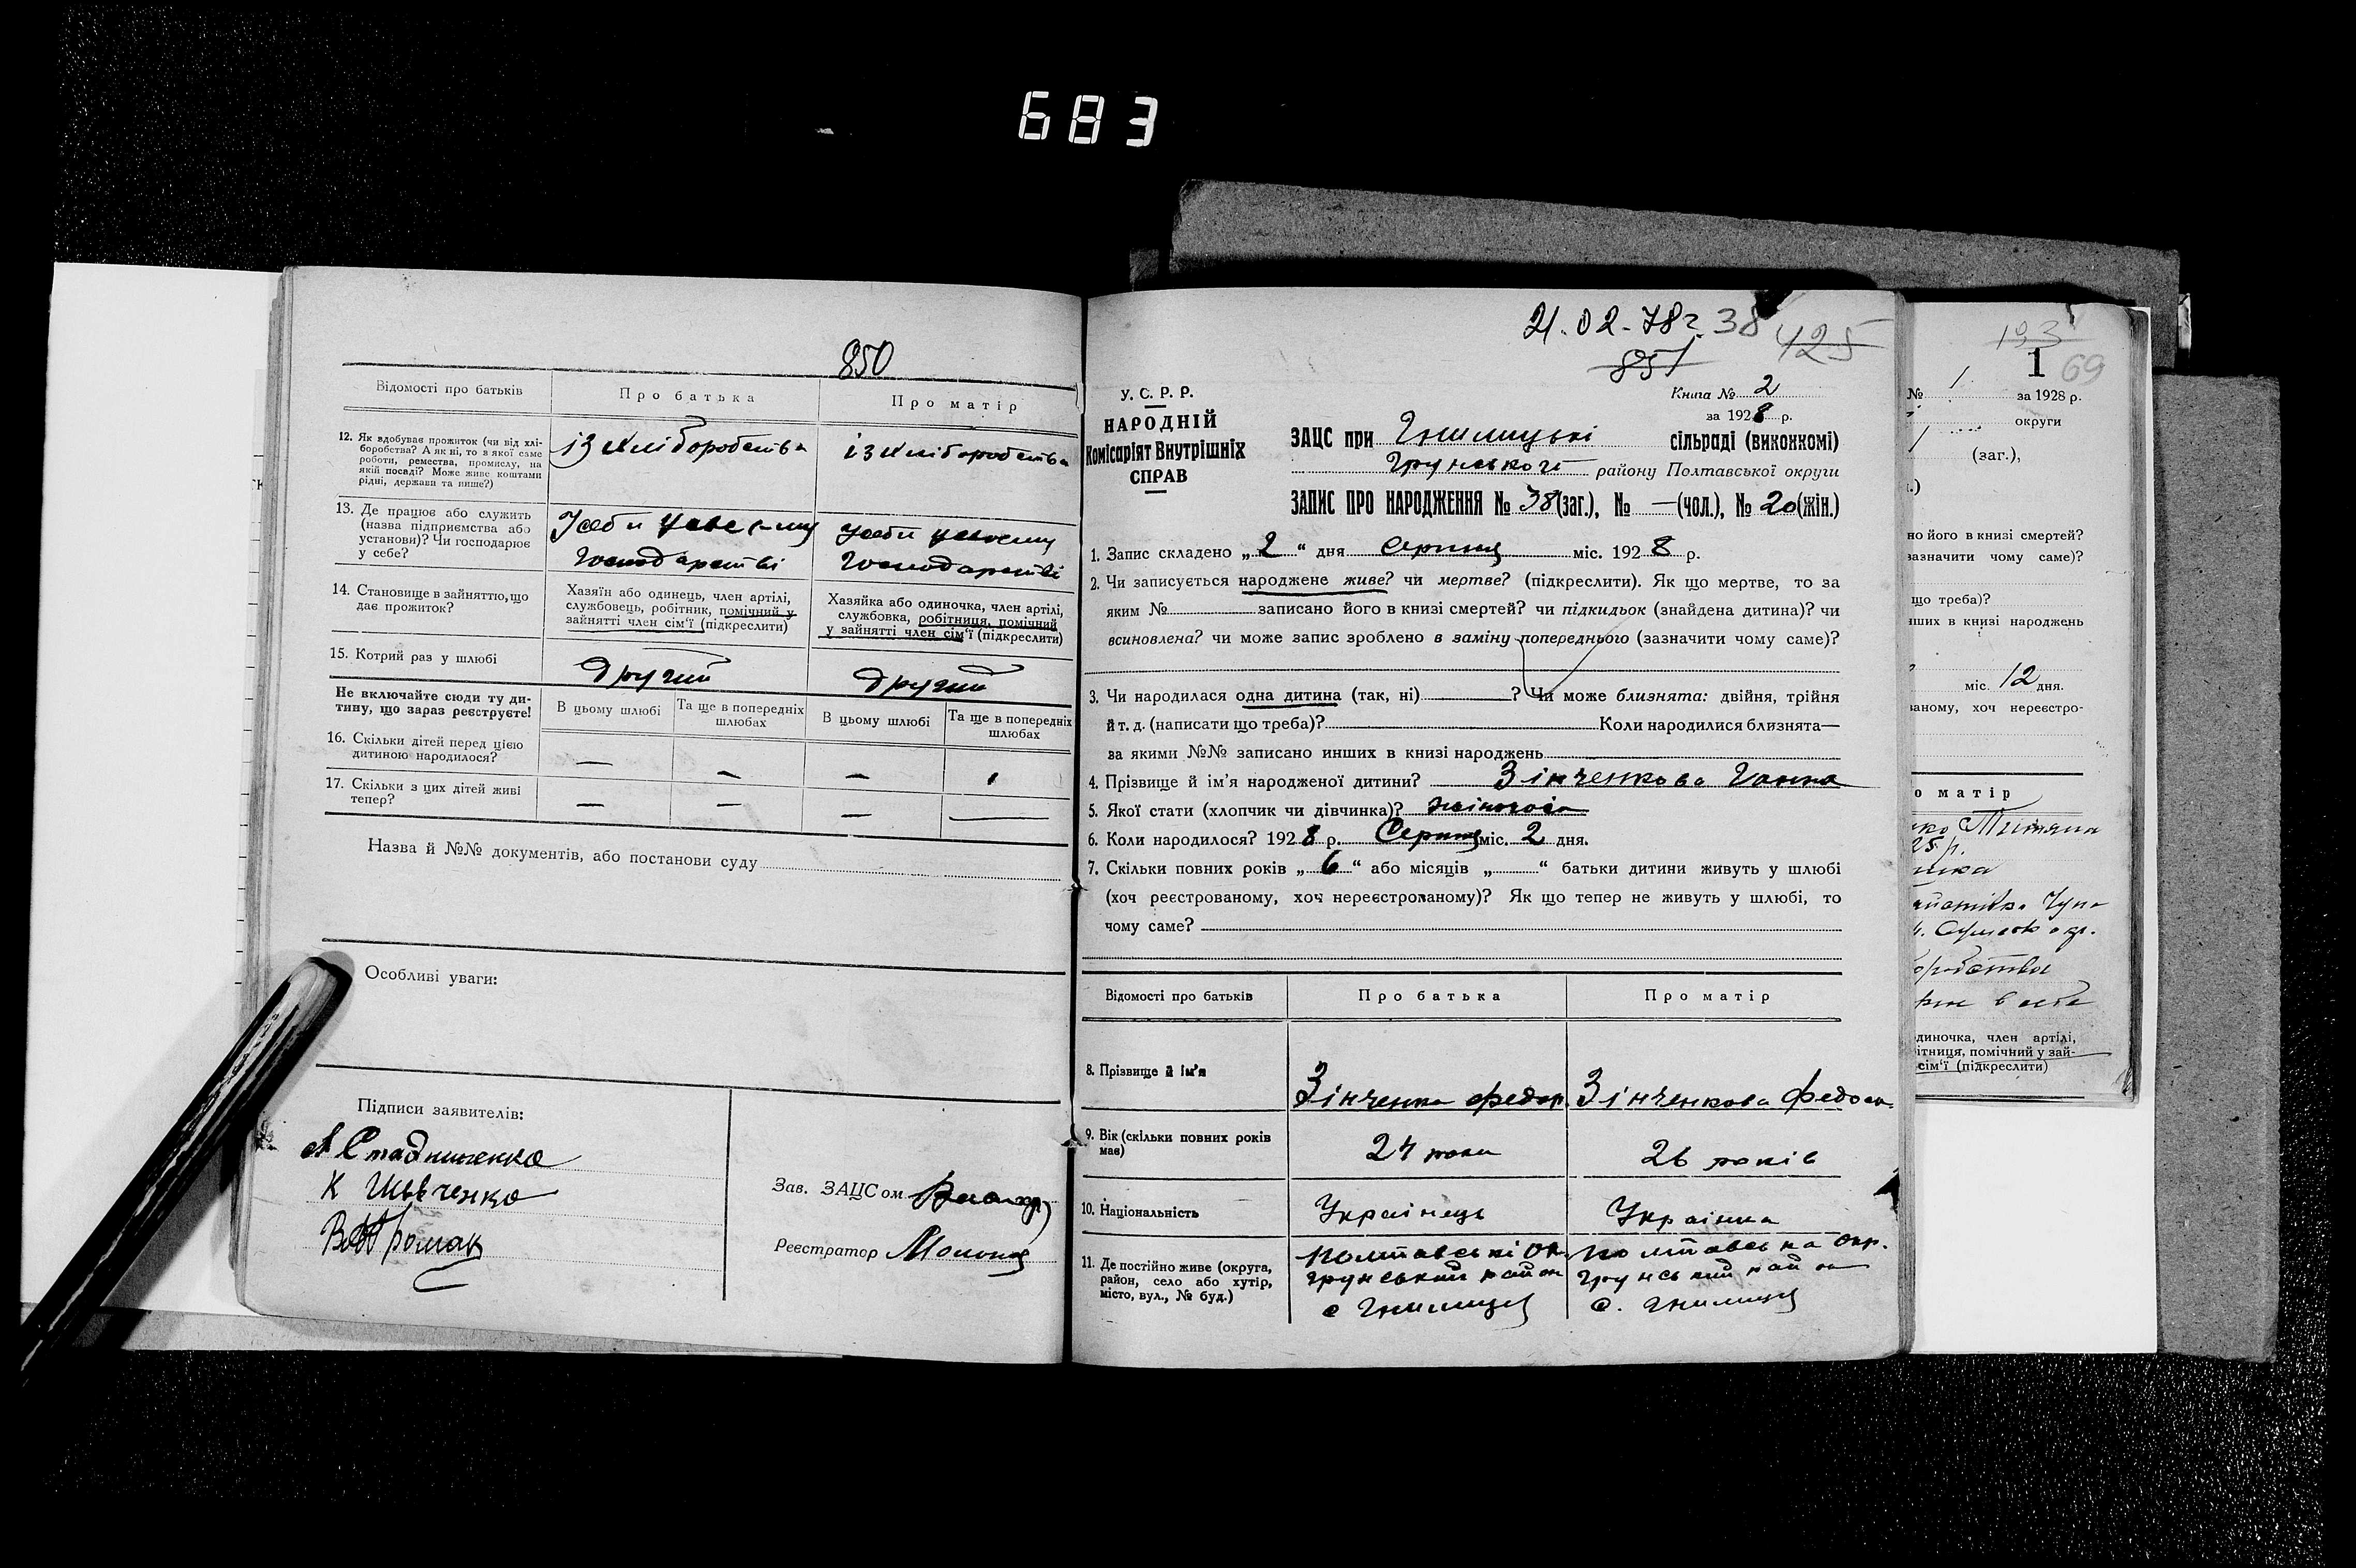 683
850
Відомості про батьків
Про батька
Про матір
12. Як здобуває прожиток (чи від хлі-
боробства? А як ні, то в якої саме
роботи, ремества, промислу, на
якій посаді? Може живе коштами
рідні, держави та инше?)
із хліборобства
із хліборобства
13. Де працює або служить
(назва підприємства або
установи)? Чи господарює
у себе?
господарстві
господарстві
14. Становище в зайняттю, що
дає прожиток?
Хазяїн або одинець, член артілі,
службовець, робітник, помічний у
зайнятті член сім'ї (підкреслити)
Хазяйка або одиночка, член артілі,
службовка, робітниця, помічний
у зайнятті член сім'ї (підкреслити)
15. Котрий раз у шлюбі
другий
другий
Не включайте сюди ту ди-
тину, що зараз реєструєте!
В цьому шлюбі
Та ще в попередніх
шлюбах
В цьому шлюбі
Та ще в попередніх
шлюбах
16. Скільки дітей перед цією
дитиною народилося?
— — —
17. Скільки з цих дітей живі
тепер?
— — — —
Назва й №№ документів, або постанови суду
Особливі уваги:
Підписи заявителів:
К Шевченко
Зав. ЗАЦСом
Реєстратор
21.02-78г. 38 425
851
У. С. Р. Р.
НАРОДНІЙ
Комісаріят Внутрішніх
СПРАВ
Книга № 2
за 1928 р.
ЗАЦС при Гнилицькі сільраді (виконкомі)
Грунського району Полтавської округи
ЗАПИС ПРО НАРОДЖЕННЯ № 38 (заг.), № — (чол.), № 20 (жін.)
1. Запис складено „2“ дня серпня міс. 1928 р.
2. Чи записується народжене живе? чи мертве? (підкреслити). Як що мертве, то за
яким № записано його в книзі смертей? чи підкидьок (знайдена дитина)? чи
всиновлена? чи може запис зроблено в заміну попереднього (зазначити чому саме)?
3. Чи народилася одна дитина (так, ні) ? Чи може близнята: двійня, трійня
й т. д. (написати що треба)? Коли народилися близнята—
за якими №№ записано инших в книзі народжень
4. Прізвище й ім'я народженої дитини? Зінченкова Ганна
5. Якої стати (хлопчик чи дівчинка)? жіночоі
6. Коли народилося? 1928 р. Серпня міс. 2 дня.
7. Скільки повних років „6“ або місяців „ “ батьки дитини живуть у шлюбі
(хоч реєстрованому, хоч нереєстрованому)? Як що тепер не живуть у шлюбі, то
чому саме?
Відомості про батьків
Про батька
Про матір
8. Прізвище й ім'я
Зінченко Федор.
Зінченкова Федос.
9. Вік (скільки повних років
має)
24 роки
26 років
10. Національність
Українець
Українка
11. Де постійно живе (округа,
район, село або хутір,
місто, вул., № буд.)
Полтавські ок.
грунський район
с Гнилиця
Полтавська окр.
грунський район
с. Гнилиця
193
1 69
№ 1 за 1928 р.
округи
(заг.),
но його в книзі смертей?
зазначити чому саме)?
що треба)?
нших в книзі народжень
міс. 12 дня.
ваному, хоч нереєстро-
о матір
25 р.
одиночка, член артілі,
ітниця, помічний у зай-
сім'ї (підкреслити)